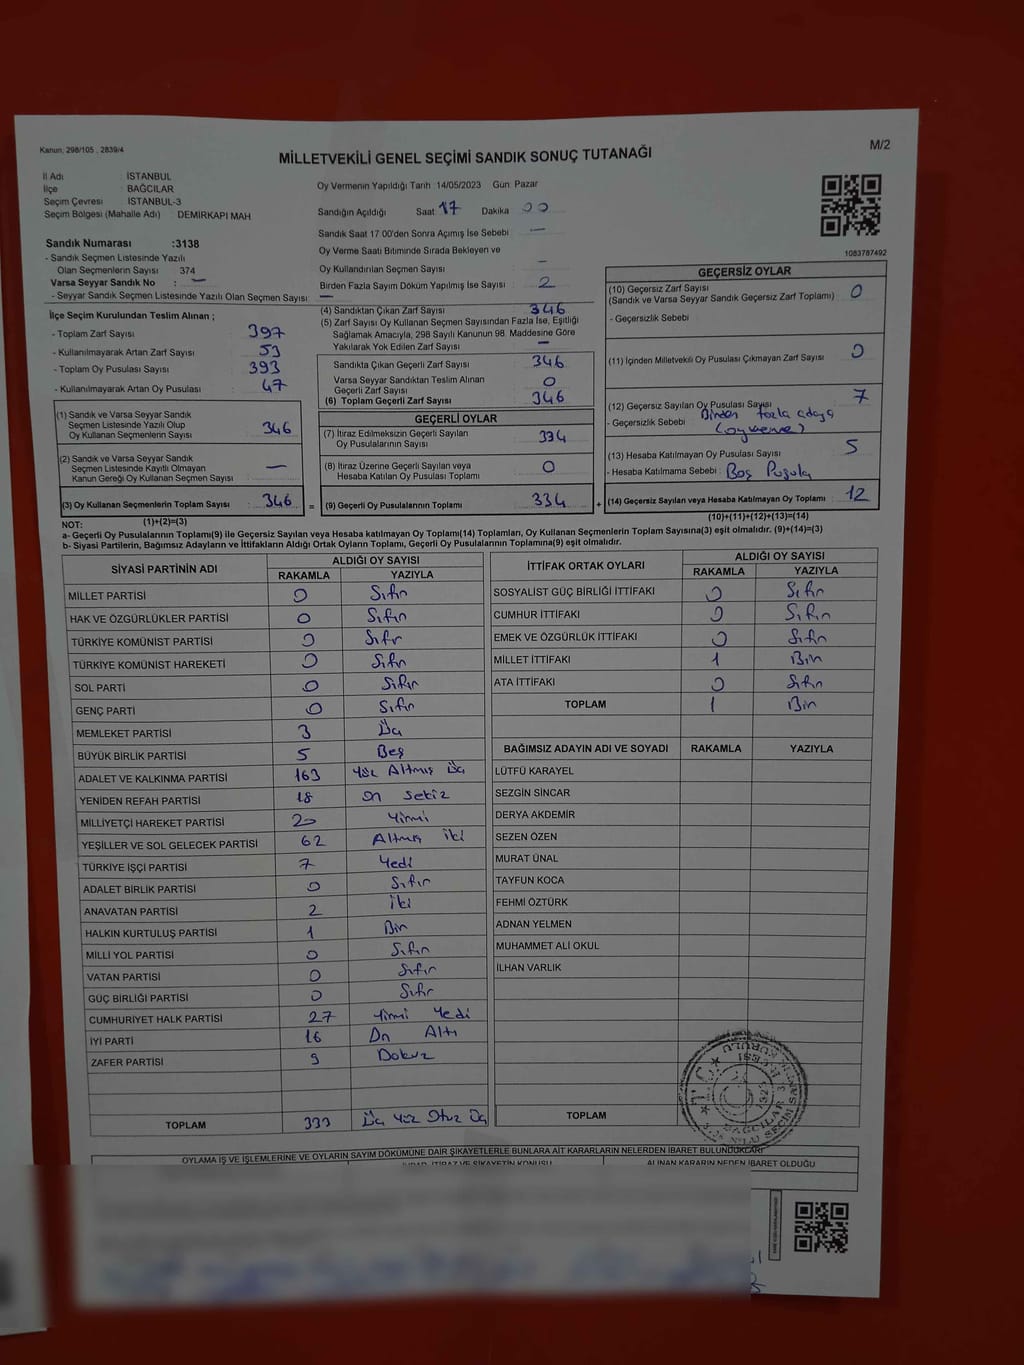 Kanun; 298/105 , 2839/4
M/2
MİLLETVEKİLİ GENEL SEÇİMİ SANDIK SONUÇ TUTANAĞI
İl Adı : İSTANBUL
İlçe : BAĞCILAR
Seçim Çevresi : İSTANBUL-3
Seçim Bölgesi (Mahalle Adı) : DEMİRKAPI MAH
Sandık Numarası :3138
- Sandık Seçmen Listesinde Yazılı
Olan Seçmenlerin Sayısı 374
Varsa Seyyar Sandık No : —
- Seyyar Sandık Seçmen Listesinde Yazılı Olan Seçmen Sayısı : —
Oy Vermenin Yapıldığı Tarih 14/05/2023 Gün: Pazar
Sandığın Açıldığı Saat 17 Dakika 00
Sandık Saat 17 00'den Sonra Açımış İse Sebebi : —
Oy Verme Saati Bitiminde Sırada Bekleyen ve
Oy Kullandırılan Seçmen Sayısı : -
Birden Fazla Sayım Döküm Yapılmış İse Sayısı : 2
1083787492
İlçe Seçim Kurulundan Teslim Alınan ;
- Toplam Zarf Sayısı : 397
- Kullanılmayarak Artan Zarf Sayısı : 51
- Toplam Oy Pusulası Sayısı : 393
- Kullanılmayarak Artan Oy Pusulası : 47
(1) Sandık ve Varsa Seyyar Sandık
Seçmen Listesinde Yazılı Olup
Oy Kullanan Seçmenlerin Sayısı : 346
(2) Sandık ve Varsa Seyyar Sandık
Seçmen Listesinde Kayıtlı Olmayan
Kanun Gereği Oy Kullanan Seçmen Sayısı : —
(3) Oy Kullanan Seçmenlerin Toplam Sayısı : 346
(1)+(2)=(3)
(4) Sandıktan Çıkan Zarf Sayısı : 346
(5) Zarf Sayısı Oy Kullanan Seçmen Sayısından Fazla İse, Eşitliği
Sağlamak Amacıyla, 298 Sayılı Kanunun 98. Maddesine Göre
Yakılarak Yok Edilen Zarf Sayısı : —
Sandıkta Çıkan Geçerli Zarf Sayısı : 346
Varsa Seyyar Sandıktan Teslim Alınan
Geçerli Zarf Sayısı : 0
(6) Toplam Geçerli Zarf Sayısı : 346
GEÇERLİ OYLAR
(7) İtiraz Edilmeksizin Geçerli Sayılan
Oy Pusulalarının Sayısı : 334
(8) İtiraz Üzerine Geçerli Sayılan veya
Hesaba Katılan Oy Pusulası Toplamı : 0
= (9) Geçerli Oy Pusulalarının Toplamı : 334 +
GEÇERSİZ OYLAR
(10) Geçersiz Zarf Sayısı : 0
(Sandık ve Varsa Seyyar Sandık Geçersiz Zarf Toplamı)
- Geçersizlik Sebebi :
(11) İçinden Milletvekili Oy Pusulası Çıkmayan Zarf Sayısı : 0
(12) Geçersiz Sayılan Oy Pusulası Sayısı : 7
- Geçersizlik Sebebi : Birden fazla adaya
(oy verme)
(13) Hesaba Katılmayan Oy Pusulası Sayısı : 5
- Hesaba Katılmama Sebebi : Boş Pusula
(14) Geçersiz Sayılan veya Hesaba Katılmayan Oy Toplamı : 12
(10)+(11)+(12)+(13)=(14)
NOT:
a- Geçerli Oy Pusulalarının Toplamı(9) ile Geçersiz Sayılan veya Hesaba katılmayan Oy Toplamı(14) Toplamları, Oy Kullanan Seçmenlerin Toplam Sayısına(3) eşit olmalıdır. (9)+(14)=(3)
b- Siyasi Partilerin, Bağımsız Adayların ve İttifakların Aldığı Ortak Oyların Toplamı, Geçerli Oy Pusulalarının Toplamına(9) eşit olmalıdır.
SİYASİ PARTİNİN ADI ALDIĞI OY SAYISI
RAKAMLA YAZIYLA
MİLLET PARTİSİ 0 Sıfır
HAK VE ÖZGÜRLÜKLER PARTİSİ 0 Sıfır
TÜRKİYE KOMÜNİST PARTİSİ 0 Sıfır
TÜRKİYE KOMÜNİST HAREKETİ 0 Sıfır
SOL PARTİ 0 Sıfır
GENÇ PARTİ 0 Sıfır
MEMLEKET PARTİSİ 3 Üç
BÜYÜK BİRLİK PARTİSİ 5 Beş
ADALET VE KALKINMA PARTİSİ 163 Yüz Altmış Üç
YENİDEN REFAH PARTİSİ 18 On Sekiz
MİLLİYETÇİ HAREKET PARTİSİ 20 Yirmi
YEŞİLLER VE SOL GELECEK PARTİSİ 62 Altmış İki
TÜRKİYE İŞÇİ PARTİSİ 7 Yedi
ADALET BİRLİK PARTİSİ 0 Sıfır
ANAVATAN PARTİSİ 2 İki
HALKIN KURTULUŞ PARTİSİ 1 Bir
MİLLİ YOL PARTİSİ 0 Sıfır
VATAN PARTİSİ 0 Sıfır
GÜÇ BİRLİĞİ PARTİSİ 0 Sıfır
CUMHURİYET HALK PARTİSİ 27 Yirmi Yedi
İYİ PARTİ 16 On Altı
ZAFER PARTİSİ 9 Dokuz
TOPLAM 333 Üç Yüz Otuz Üç
İTTİFAK ORTAK OYLARI ALDIĞI OY SAYISI
RAKAMLA YAZIYLA
SOSYALİST GÜÇ BİRLİĞİ İTTİFAKI 0 Sıfır
CUMHUR İTTİFAKI 0 Sıfır
EMEK VE ÖZGÜRLÜK İTTİFAKI 0 Sıfır
MİLLET İTTİFAKI 1 Bir
ATA İTTİFAKI 0 Sıfır
TOPLAM 1 Bir
BAĞIMSIZ ADAYIN ADI VE SOYADI RAKAMLA YAZIYLA
LÜTFÜ KARAYEL
SEZGİN SİNCAR
DERYA AKDEMİR
SEZEN ÖZEN
MURAT ÜNAL
TAYFUN KOCA
FEHMİ ÖZTÜRK
ADNAN YELMEN
MUHAMMET ALİ OKUL
İLHAN VARLIK
TOPLAM
OYLAMA İŞ VE İŞLEMLERİNE VE OYLARIN SAYIM DÖKÜMÜNE DAİR ŞİKAYETLERLE BUNLARA AİT KARARLARIN NELERDEN İBARET BULUNDUKLARI
İTİRAZ VE ŞİKAYETİN KONUSU ALINAN KARARIN NEDEN İBARET OLDUĞU